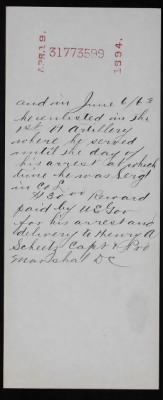 APR. 19. 31773599 1894.
and in June 6/63
he enlisted in the
1st H Artillery
where he served
until the day of
his arrest at which
time he was Sergt
in Co
$30 00 Reward
paid by U S Gov
for his arrest and
delivery to Henry A
Scheetz Capt & Pro
Marshal D C